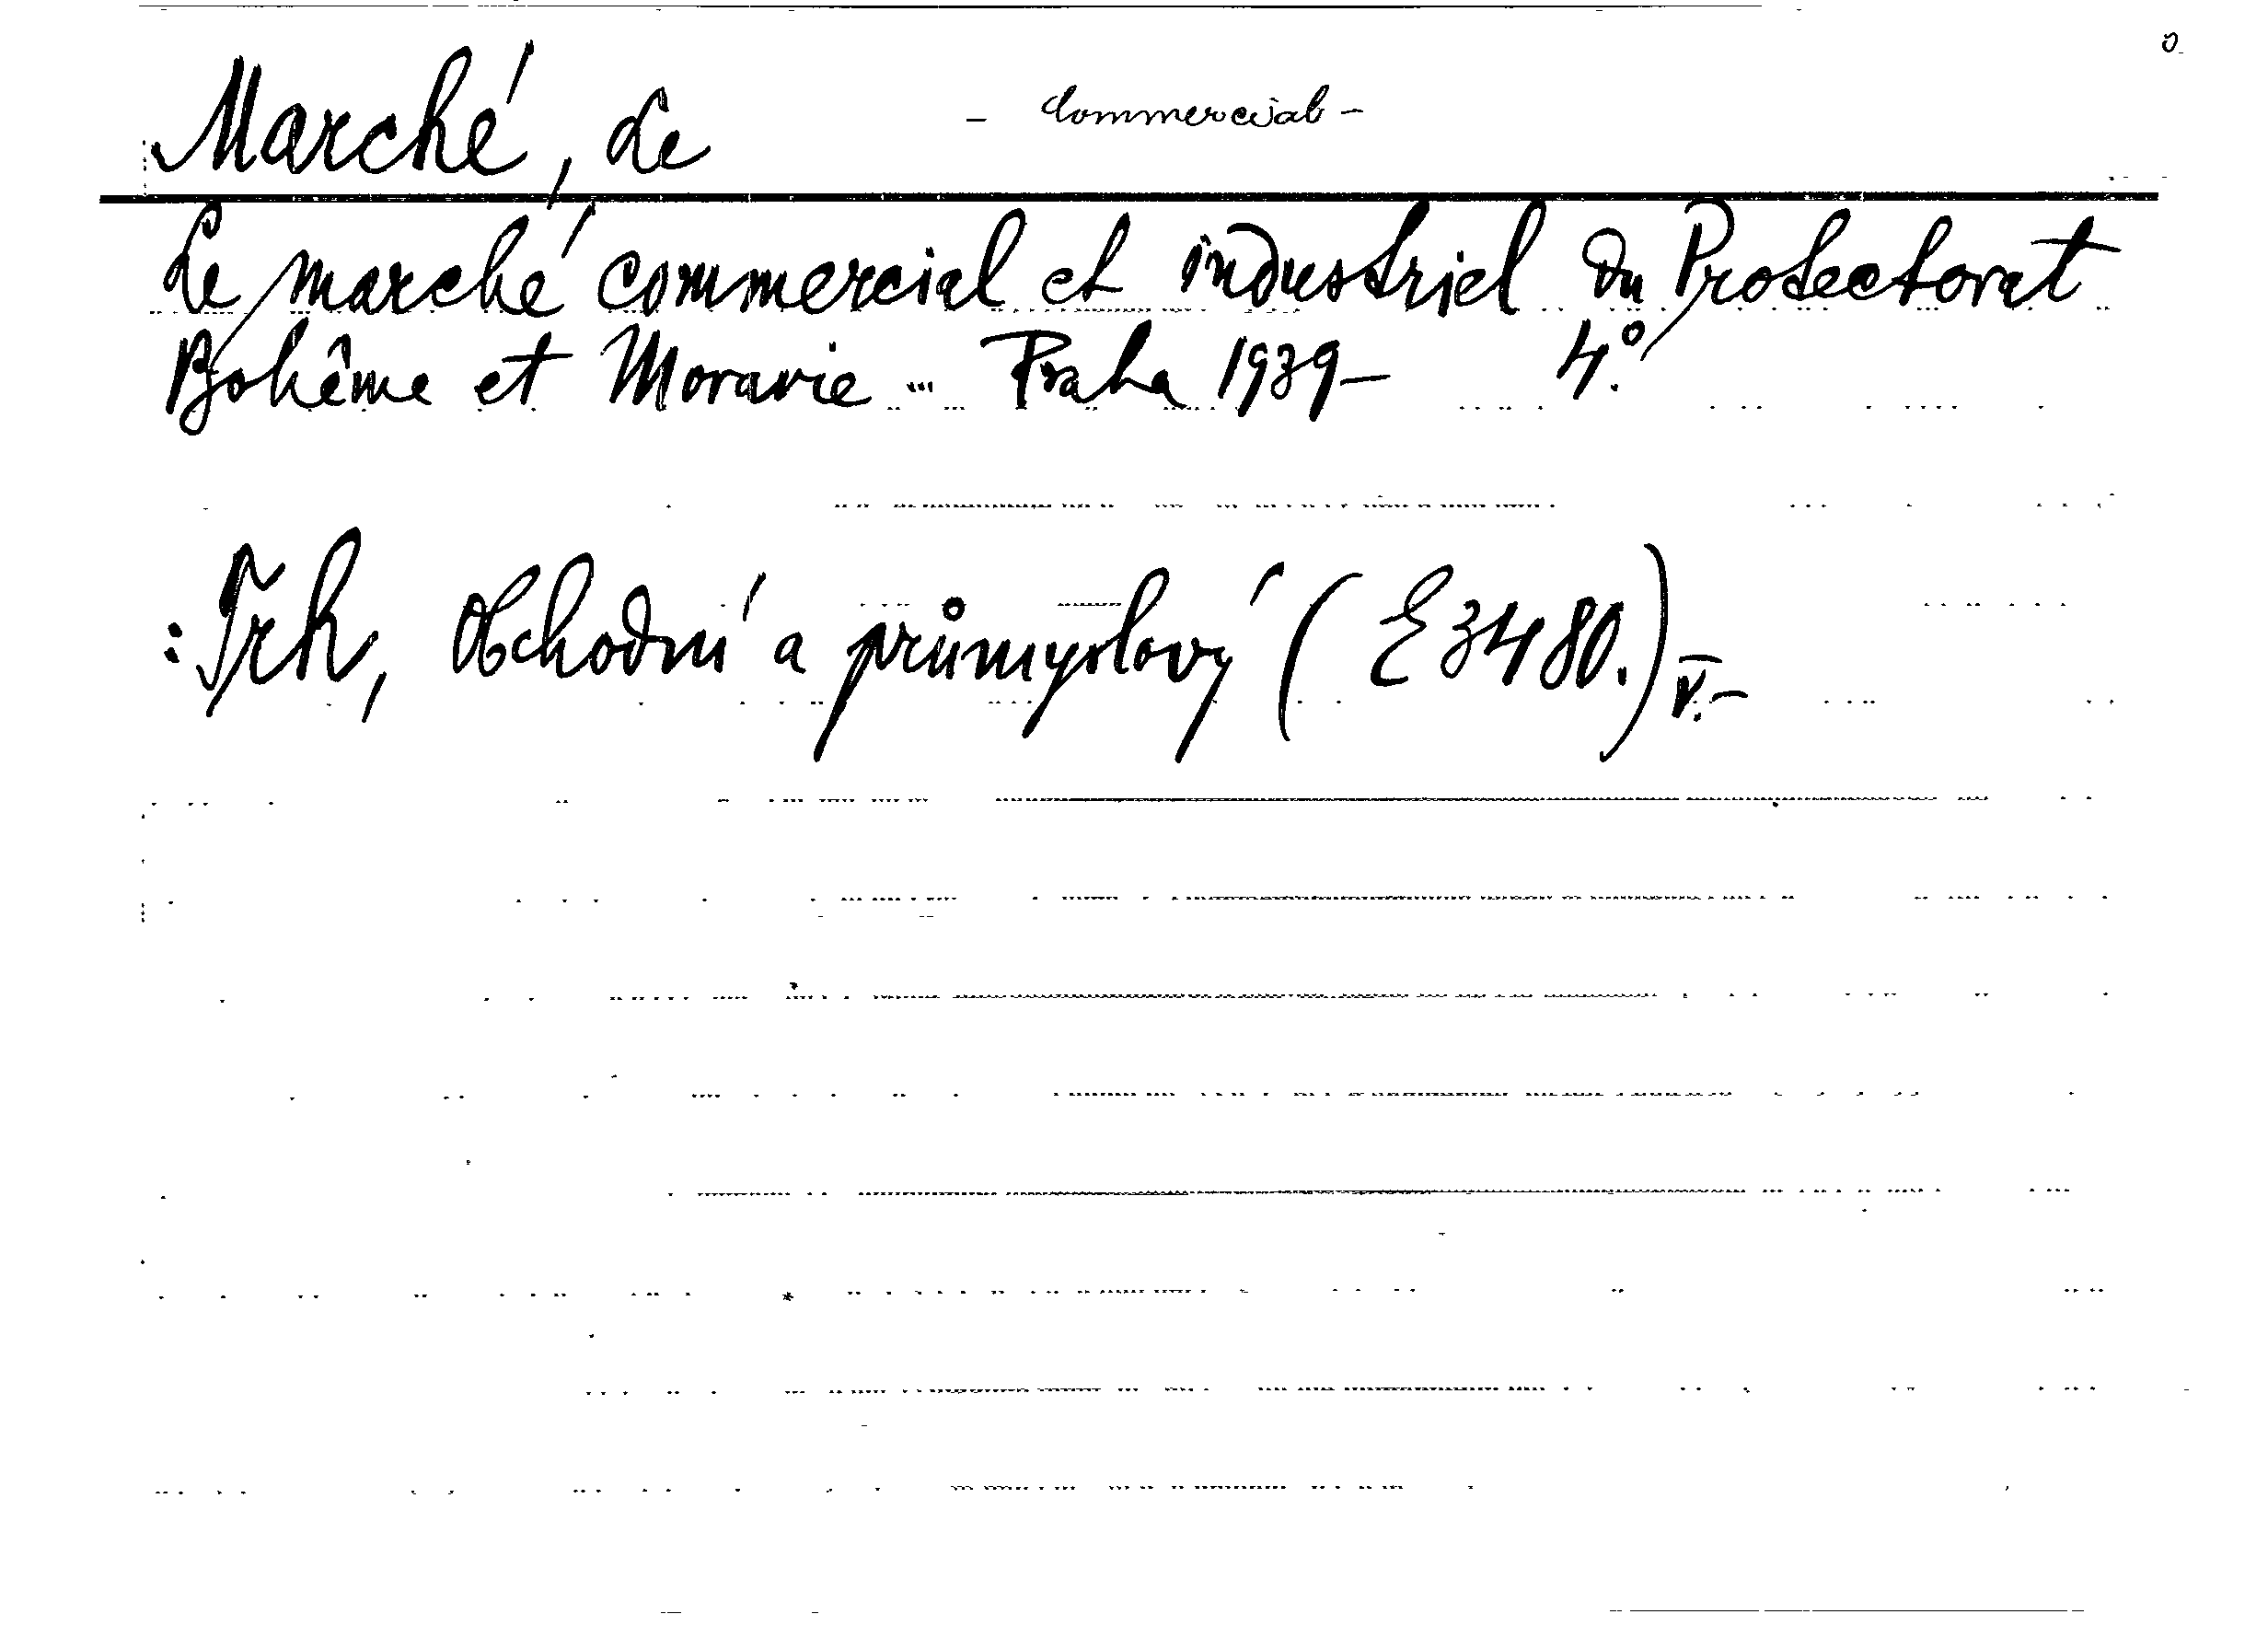 Marché, Le - Commercial -
Le marché commercial et industriel du Protectorat
Bohême et Moravie ... Praha 1939- 4°.
: Trh, Obchodní a průmyslový (E 3480.) V.-